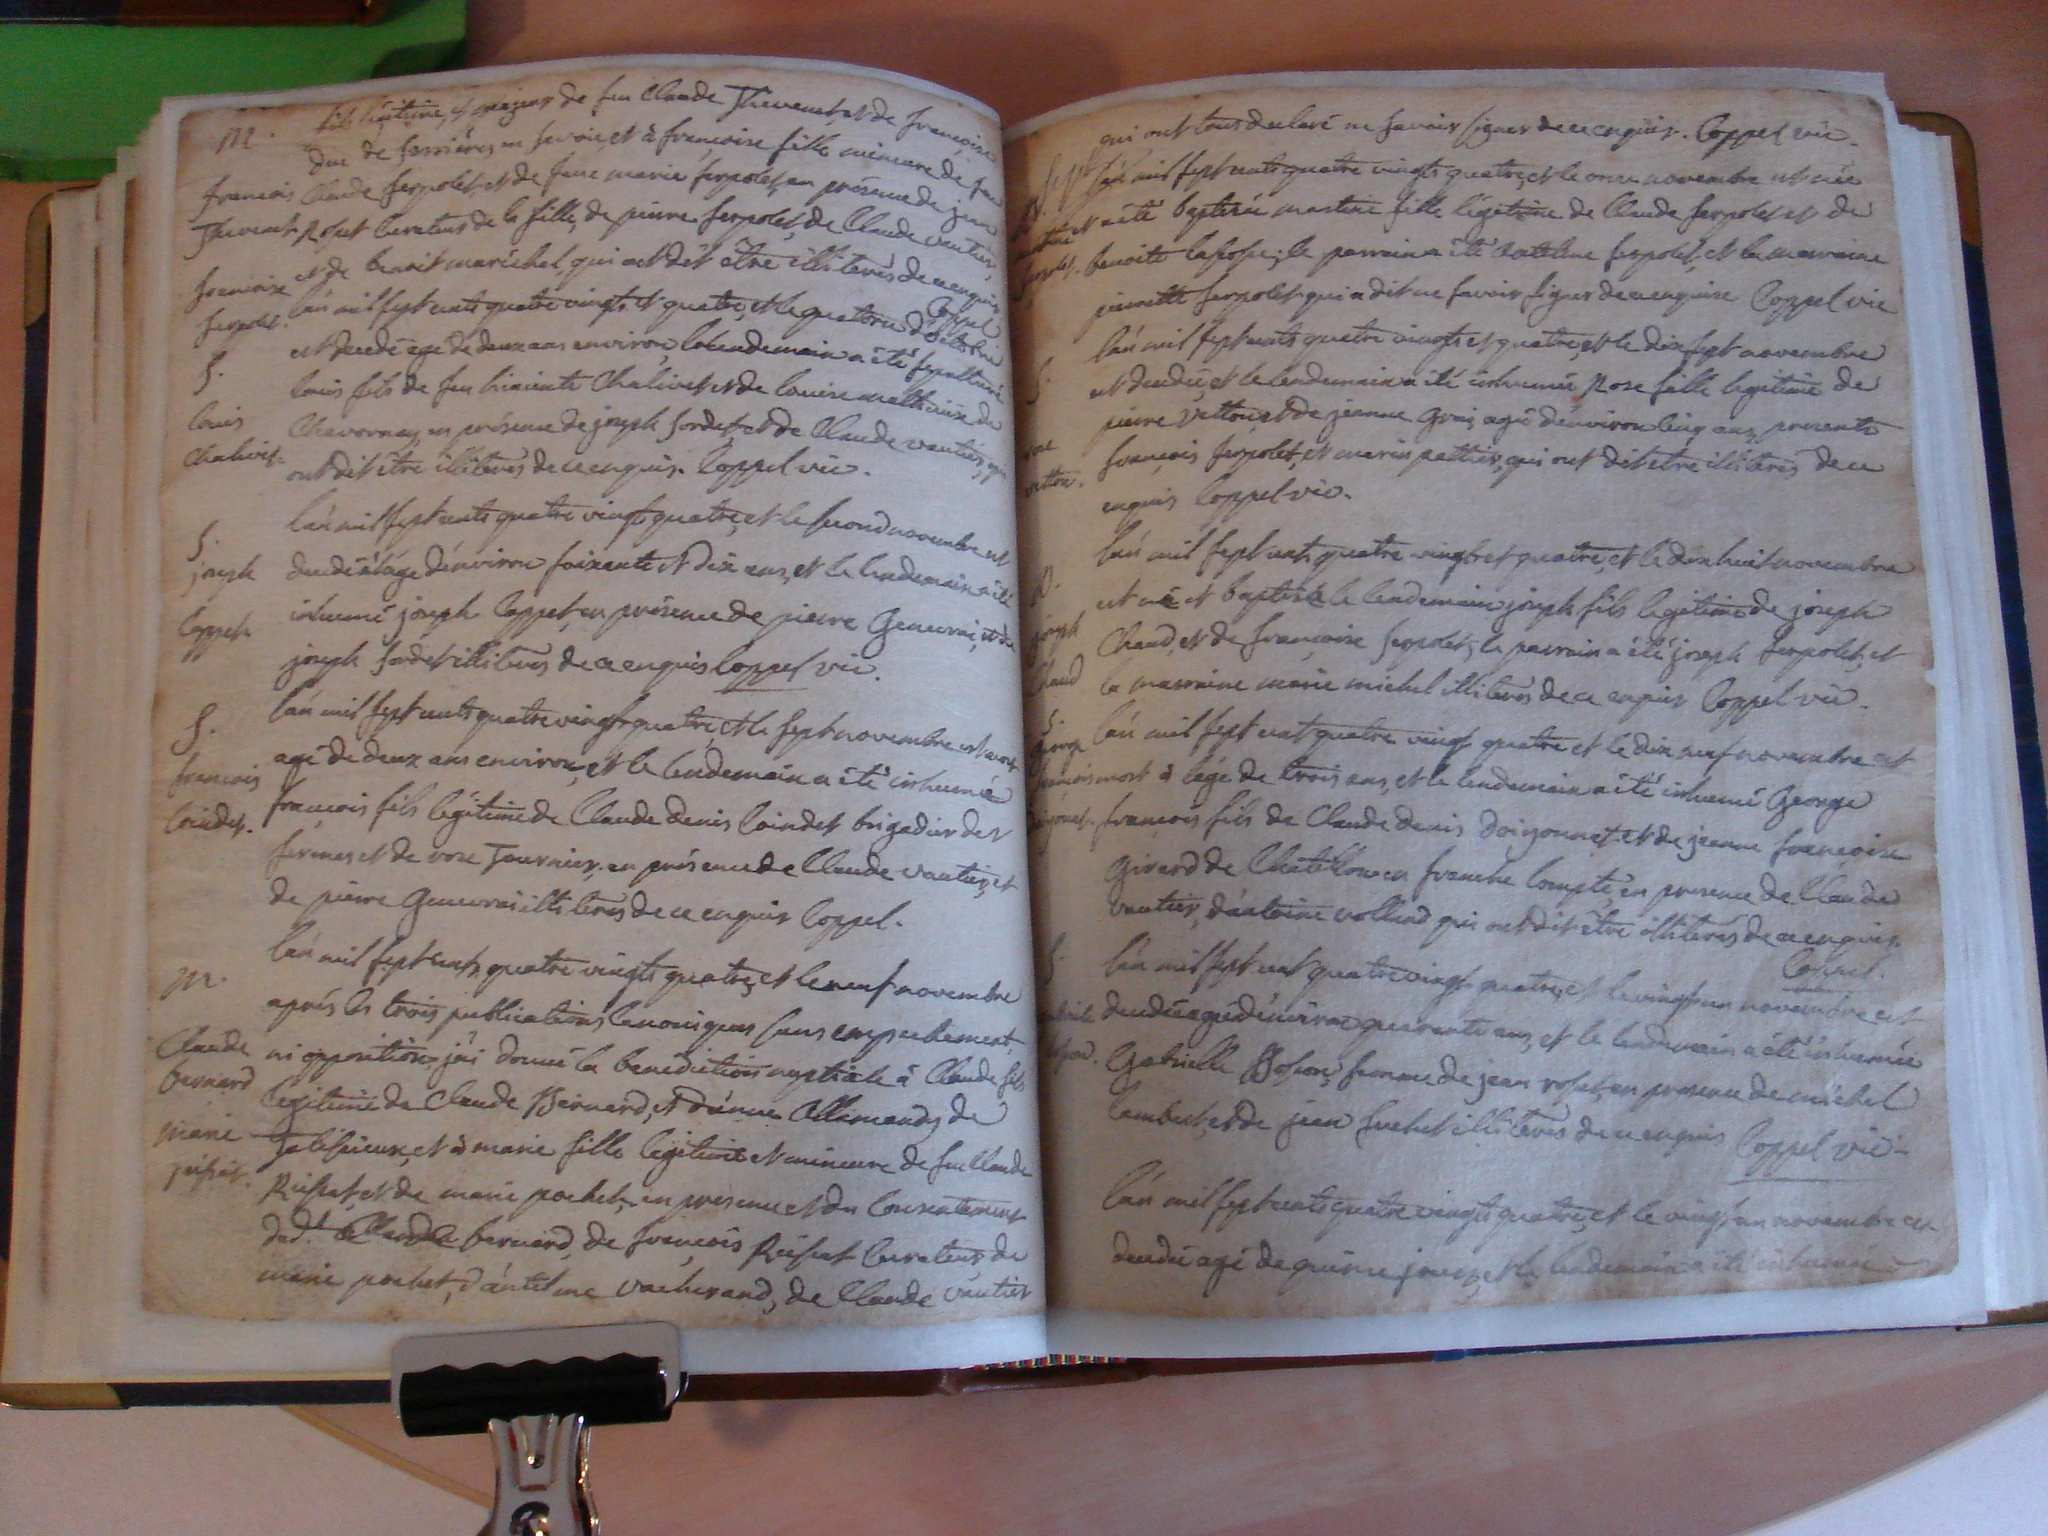 M.
fils légitime, et majeur de feu Claude Thevenet et de françoise
duc de ferrières en savoie et à françoise fille mineure de feu
françois Claude serpolet, et de feue marie serpolet, en présence de jean
Thevenet Rosset Curateur de la fille, de pierre serpolet, de Claude vautier,
et de benoit maréchal, qui ont dit être illiterés de ce enquis
françoise
serpolet.
Coppel
l'an mil sept cents quatre vingts et quatre, et le quatorze d'octobre
S.
est decedé agé de deux ans environ, le lendemain a été sepulturé
louis fils de feu hiacinte Chalivet et de louise
louis
Chavornay, en présence de joseph sordet, et de Claude vautier, qui
Chalivet.
ont dit être illiterés de ce enquis. Coppel vic.
l'an mil sept cents quatre vingts quatre, et le second novembre est
S.
joseph
decedé à l'âge d'environ soixante et dix ans, et le lendemain a été
Coppel.
inhumé joseph Coppel, en présence de pierre Genevrai, et de
joseph sordet illiterés de ce enquis Coppel vic.
l'an mil sept cents quatre vingts quatre et le sept novembre est mort
S.
agé de deux ans environ, et le lendemain a été inhumé
françois
françois fils légitime de Claude denis Coindet brigadier des
Coindet.
fermes et de rose Tournier. en présence de Claude vautier, et
de pierre Genevrai illiterés de ce enquis Coppel.
l'an mil sept cents quatre vingts quatre, et le neuf novembre
M.
après les trois publications canoniques sans empechement,
Claude
ni opposition, j'ai donné la benediction nuptiale à Claude fils
bernard
légitime de Claude Bernard, et d'anne Allemand, de
marie
Talissieux, et à marie fille légitime et mineure de feu Claude
Reisset, et de marie pochet, en presence et du consentement
dud. Claude bernard, de françois Reisset Curateur de
marie pochet, d'antelme vacherand, de Claude vautier
qui ont tous declaré ne savoir signer de ce enquis. Coppel vic.
l'an mil sept cents quatre vingts quatre, et le onze novembre est née
et a été baptisée martine fille légitime de Claude serpolet et de
serpolet.
benoite ; le parrain a été antelme serpolet, et la marraine
pierrette serpolet qui a dit ne savoir signer de ce enquise Coppel vic
l'an mil sept cents quatre vingts et quatre, et le dix sept novembre
S.
est decedée, et le lendemain a été inhumée Rose fille legitime de
pierre vetton, et de jeanne grois agée d'environ cinq ans, presents
rose
françois serpolet, et marin pettier, qui ont dit etre illiterés de ce
vetton.
enquis Coppel vic.
l'an mil sept cents quatre vingts et quatre, et le dix huit novembre
est né et baptisé le lendemain joseph fils legitime de joseph
joseph
Chaud, et de françoise serpolet, le parrain a été joseph serpolet, et
Chaud
la marraine marie michel illiterés de ce enquis Coppel vic.
S.
l'an mil sept cent quatre vingt quatre et le dix neuf novembre est
George
françois mort à l'âge de trois ans, et le lendemain a été inhumé George
françois fils de Claude denis doizonnet et de jeanne françoise
Girard de Chatillon en franche Compté, en presence de Claude
vautier, d'antoine volland qui ont dit être illiterés de ce enquis.
Coppel.
S.
l'an mil sept cent quatre vingt quatre, et le vingt un novembre est
decedée agée d'environ quarante ans, et le lendemain a été inhumée
Gabrielle Bosson, femme de jean rosset, en presence de michel
lambert, et de jean suchet illiterés de ce enquis Coppel vic.
l'an mil sept cents quatre vingts quatre, et le vingt un novembre est
decedé agé de quinze jours, et le lendemain a été inhumé